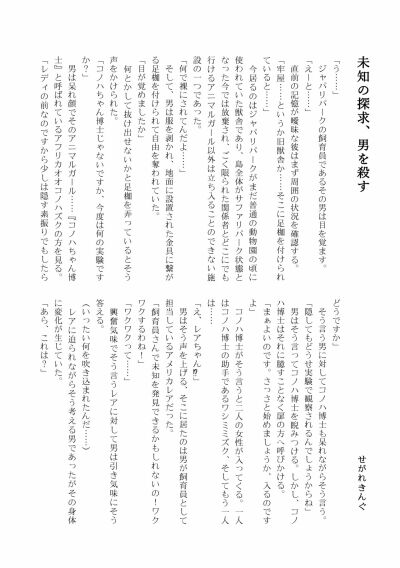 未知の探求、男を殺す
せがれきんぐ
「う……」
　ジャパリパークの飼育員であるその男は目を覚ます。
「えーと……」
　直前の記憶が曖昧な後はまず周囲の状況を確認する。
「牢屋……というか旧獣舎か……そこに足枷を付けられ
ていると……」
　今居るのはジャパリパークがまだ普通の動物園の頃に
使われていた獣舎であり、島全体がサファリパーク状態と
なった今では放棄され、ごく限られた関係者とどこにでも
行けるアニマルガール以外は立ち入ることのできない施
設の一つであった。
「何で裸にされてんだよ……」
　そして、男は服を剥かれ、地面に設置された金具に繋が
る足枷を付けられて自由を奪われていた。
「目が覚めましたか」
　何とかして抜け出せないかと足枷を弄っているとそう
声をかけられた。
「コノハちゃん博士じゃないですか、今度は何の実験です
か？」
　男は呆れ顔でそのアニマルガール……『コノハちゃん博
士』と呼ばれているアフリカオオコノハズクの方を見る。
「レディの前なのですから少しは隠す素振りでもしたら
どうですか」
　そう言う男に対してコノハ博士も呆れながらそう言う。
「隠してもどうせ実験で観察されるんでしょうからね」
　男はそう言ってコノハ博士を睨みつける。しかし、コノ
ハ博士はそれに臆することなく扉の方へ呼びかける。
「まぁよいのです。さっさと始めましょうか、入るのです
よ」
　コノハ博士がそう言うと二人の女性が入ってくる。一人
はコノハ博士の助手であるワシミミズク、そしてもう一人
は……
「え、レアちゃん⁉」
　男はそう声を上げる。そこに居たのは男が飼育員として
担当しているアメリカレアだった。
「飼育員さんで未知を発見できるかもしれないの！ワク
ワクするわね！」
「ワクワクって……」
　興奮気味でそう言うレアに対して男は引き気味にそう
答える。
（いったい何を吹き込まれたんだ……）
　レアに迫られながらそう考える男であったがその身体
に変化が生じていた。
「あら、これは？」